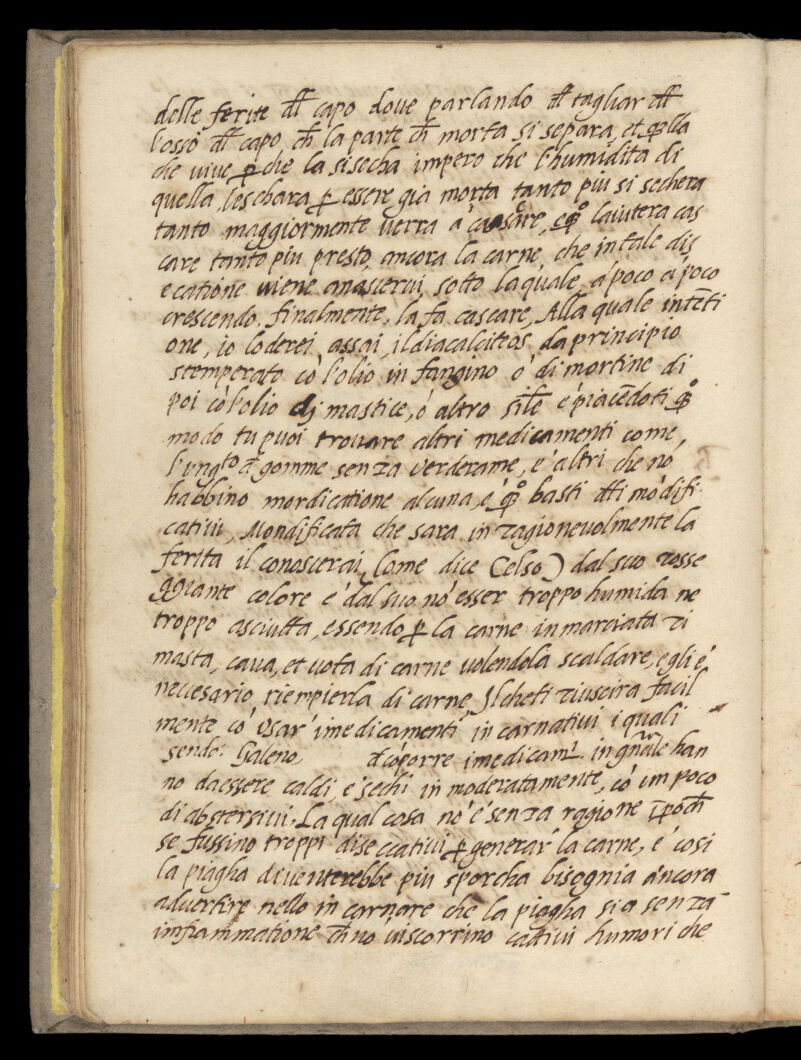 delle ferite dłł capo doue parlando dłł tagliar dłł
l'osso dłł capo, ch̄ la parte ch̄ morta si separa, et qlla
che viue, ꝑche la sisecha impero che l'humidita di
quella l'eschara ꝑ essere gia morta tanto piu si sechera
tanto maggiormente uerra à casare, e qº laiutera cas
care tanto piu presto, ancora la carne che in tale dis
ecatione uiene anascerui sotto laquale, a poco a poco
crescendo. finalmente, la fa cascare, Alla quale intēti
one, io loderei assai, il diacalcittos da principio
stemperato cò l'olio in fangino ò di mortine di
poi cò l'olio di mastice, ò altro sil̄e è piacēdoti qº
modo tu puoi trouare altri medicamenti come,
l'ungto d gomme senza verderame, è altri che nò
habbino mordicatione alcuna, è qº basti dłłi mòdifi.
catiui, Mondificata che sara in ragioneuolmente la
ferita il conoscerai (come dice Celso) dal suo rosse
ggiante colore è dal suo nò esser troppo humida ne
troppo asciutta, essendo ꝑ la carne in marciata ri
masta, caua, et uota di carne uolendola scaldare, egli è
necesario riempierla di carne, Ilcheti riuscira facil
mente cò usar' imedicamenti in carnatiui i quali
sendo: Galeno d cōporre imedicamⁱ. in gn̄ale han
no da essere caldi, e sechi in moderatamente, cò un poco
di abstersiui. La qual cosa nò è senza ragione īꝑoch̄
se fussino troppi diseccatiui ꝑ generar' la carne, è cosi
la piagha diuenterebbe piu sporcha bisognia ancora
aduertire nello in carnare che la piagha sia senza
imfiammatione ch̄ nò uiscorrino cattiui humori che